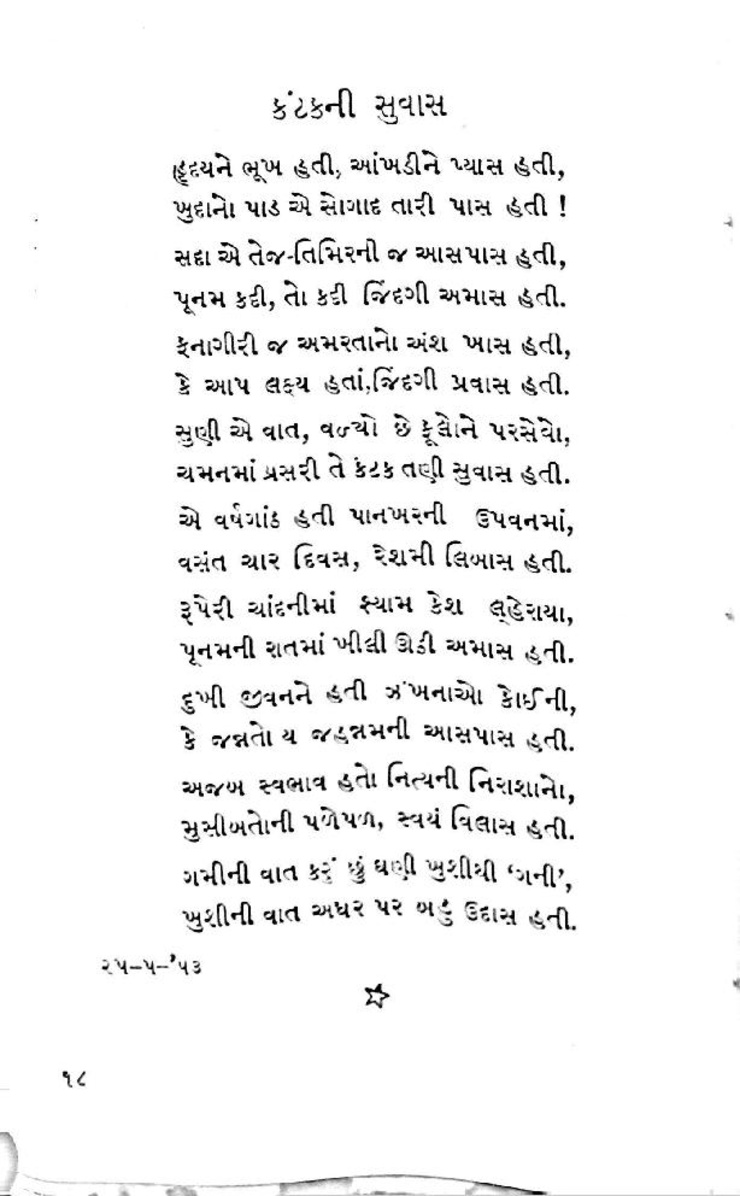 કંટકની સુવાસ
હૃદયને ભૂખ હતી, આંખડીને પ્યાસ હતી,
ખુદાનો પાડ એ સોગાદ તારી પાસ હતી !
સદા એ તેજ-તિમિરની જ આસપાસ હતી,
પૂનમ કદી, તો કદી જિંદગી અમાસ હતી.
ફનાગીરી જ અમરતાનો અંશ ખાસ હતી,
કે આપ લક્ષ્ય હતાં,જિંદગી પ્રવાસ હતી.
સુણી એ વાત, વળ્યો છે ફૂલોને પરસેવો,
ચમનમાં પ્રસરી તે કંટક તણી સુવાસ હતી.
એ વર્ષગાંઠ હતી પાનખરની ઉપવનમાં,
વસંત ચાર દિવસ, રેશમી લિબાસ હતી.
રૂપેરી ચાંદનીમાં શ્યામ કેશ લ્હેરાયા,
પૂનમની રાતમાં ખીલી ઊઠી અમાસ હતી.
દુખી જીવનને હતી ઝંખનાઓ કોઈની,
કે જન્નતો ય જહન્નમની આસપાસ હતી.
અજબ સ્વભાવ હતો નિત્યની નિરાશાનો,
મુસીબતોની પળેપળ, સ્વયં વિલાસ હતી.
ગમીની વાત કરૂં છું ઘણી ખુશીથી ‘ગની’,
ખુશીની વાત અધર પર બહુ ઉદાસ હતી.
૨૫-૫-’૫૩
૧૮